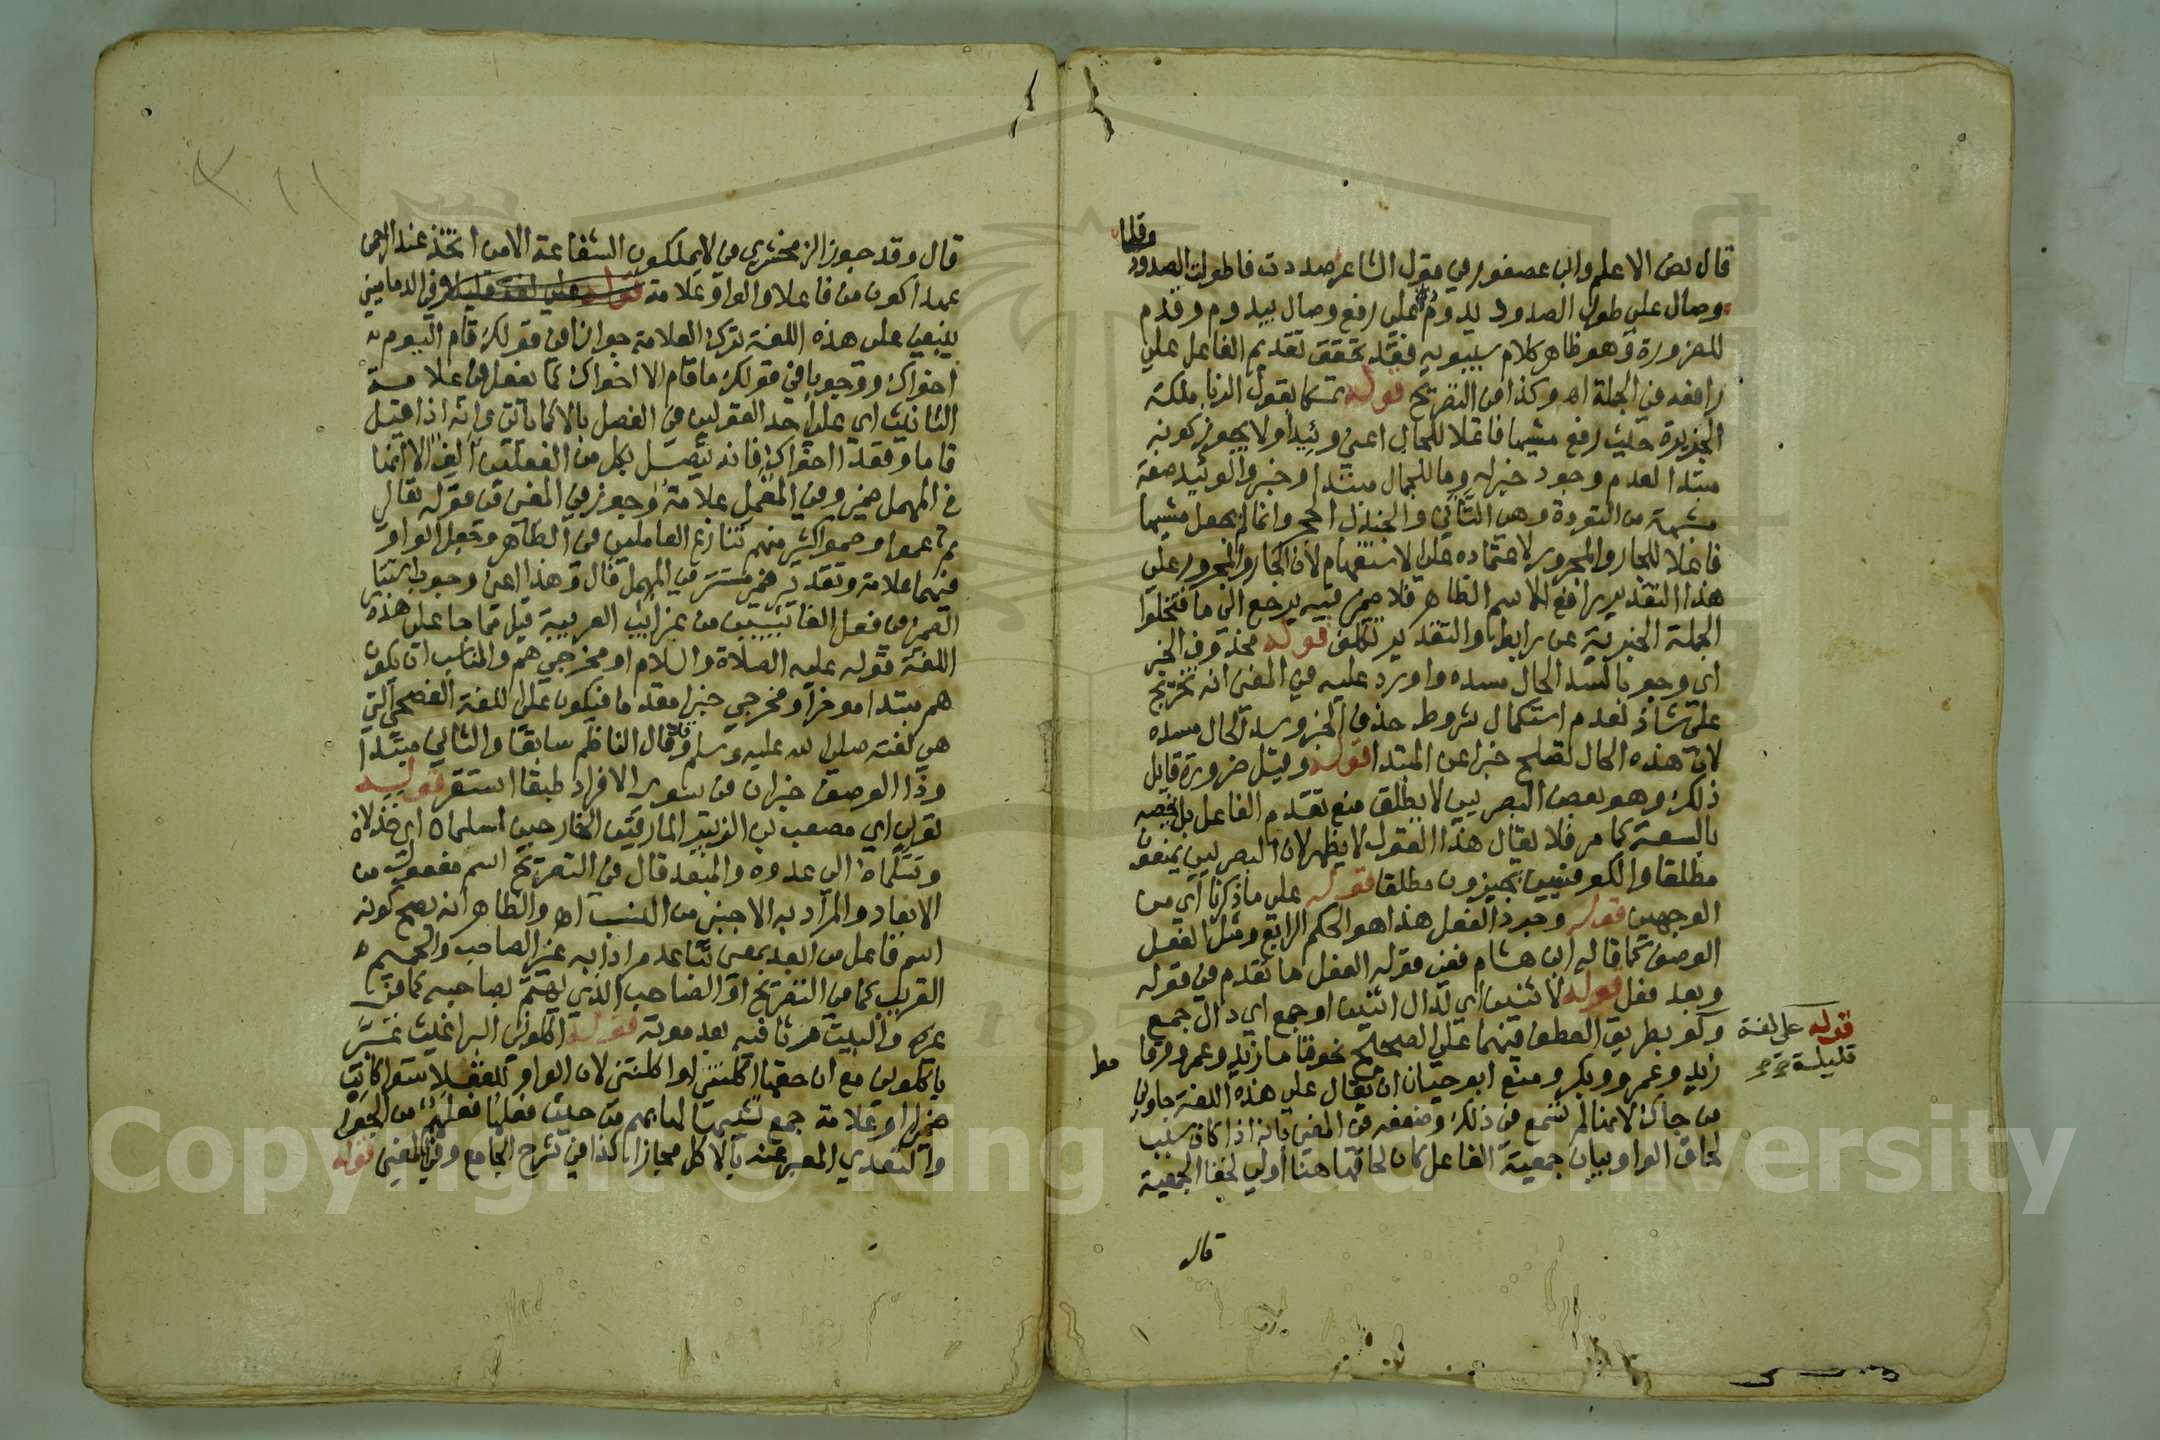 قال نص الاعلم وابن عصفور في قول الشاعر صددت فاطولت الصدود وقلما
وصال على طول الصدود يدوم على رفع وصال بيدوم وقدم
للضرورة وهو ظاهر كلام سيبويه فقد تحقق تقديم الفاعل على
رافعه في الجملة اه وكذا في التصريح قوله تمسكا بقول الزبا ملكة
الجزيرة حيث رفع مشيها فاعلا للحال اعني وئيدا ولا يجوز كونه
مبتدا لعدم وجود خبر له وما للجمال مبتدا وخبر والوئيد صفة
مشبهة من التؤدة وهي التأني والجندل الحجر وانما لم يجعل مشيها
فاعلا للجار والمجرور لاعتماده على الاستفهام لان الجار والمجرور على
هذا التقدير رافع للاسم الظاهر فلا ضمير فيه يرجع الى ما فتخلوا
الجملة الخبرية عن رابط والتقدير تكلف قوله محذوف الخبر
اي وجوبا لسد الحال مسده واورد عليه في المغني انه تخريج
على شاذ لعدم استكمال شروط حذف الخبر وسد الحال مسده
لان هذه الحال تصلح خبرا عن المبتدا قوله وقيل ضرورة قايل
ذلك وهو بعض البصريين لا يطلق منع تقدم الفاعل بل يخصه
بالسعة كما مر فلا يقال هذا القول لا يظهر لان البصريين يمنعون
مطلقا والكوفيين يجيزون مطلقا قوله على ما ذكرنا اي من
الوجهين قوله وجرد الفعل هذا هو الحكم الرابع ومثل الفعل
الوصف كما قاله ابن هشام ففي قوله الفعل ما تقدم في قوله
وبعد فعل قوله لاثنين اي لدال اثنين او جمع اي دال جمع
ولو بطريق العطف فيهما على الصحيح نحو قاما زيد وعمرو وقاموا
زيد وعمرو وبكر ومنع ابو حيان ان يقال على هذه اللغة جاوني
من جاك لانها لم تسمع في ذلك وضعفه في المغني بانه اذا كان سبب
لحاق الواو بيان جمعية الفاعل كان لحاقها هنا اولى لخفا الجمعية
قال
قوله على لغة
قليلة
قال وقد جوز الزمخشري في لا يملكون الشفاعة الا من اتخذ عند الرحمن
عهدا كون من فاعلا والواو علامة قوله على لغة قليلة وفي الدماميني
ينبغي على هذه اللغة ترك العلامة جوازا في قولك قام اليوم
اخواك ووجوبا في قولك ما قام الا اخواك كما يفعل في علامة
التانيث اي على احد القولين في الفصل بالا كما ياتي وانه اذا قيل
قاما وقعدا اخواك فانه يتصل بكل من الفعلين الف الا انها
في المهمل ضمير وفي المعمل علامة وجوز في المغني في قوله تعالى
ثم عموا وصموا كثير منهم تنازع العاملين في الظاهر وجعل الواو
فيهما علامة وتقدير ضمير مستتر في المهمل قال وهذا اعني وجوب استتار
الضمير في فعل الغائبين من غرائب العربية قيل مما جا على هذه
اللغة قوله عليه الصلاة والسلام او مخرجي هم والمناسب ان يكون
هم مبتدا موخرا ومخرجي خبرا مقدما فيكون على اللغة الفصحى التي
هي لغته صلى الله عليه وسلم وقد قال الناظم سابقا والثاني مبتدا
وذا الوصف خبر ان في سوى الافراد طبقا استقر قوله
تولى اي مصعب بن الزبير المارقين الخارجين اسلماه اي خذلاه
وسلماه الى عدوه والمبعد قال في التصريح اسم مفعول من
الابعاد والمراد به الاجنبي من النسب اه والظاهر انه يصح كونه
اسم فاعل من ابعد بمعنى تباعد مرادا به غير الصاحب والحميم
القريب كما في التصريح او الصاحب الذي يهتم بصاحبه كما في
غيره والبيت مرثا فيه بعد موته قوله اكلوني البراغيث عبر
باكلوني مع ان حقها اكلتني او اكلتني لان الواو للعقلا سوا كانت
ضميرا او علامة جمع تشبيها لها بهم من حيث فعلها فعلهم من الجور
والتعدي المعبر عنه بالاكل مجازا كذا في شرح الجامع وفي المغني قوله
Copyright © King Saud University